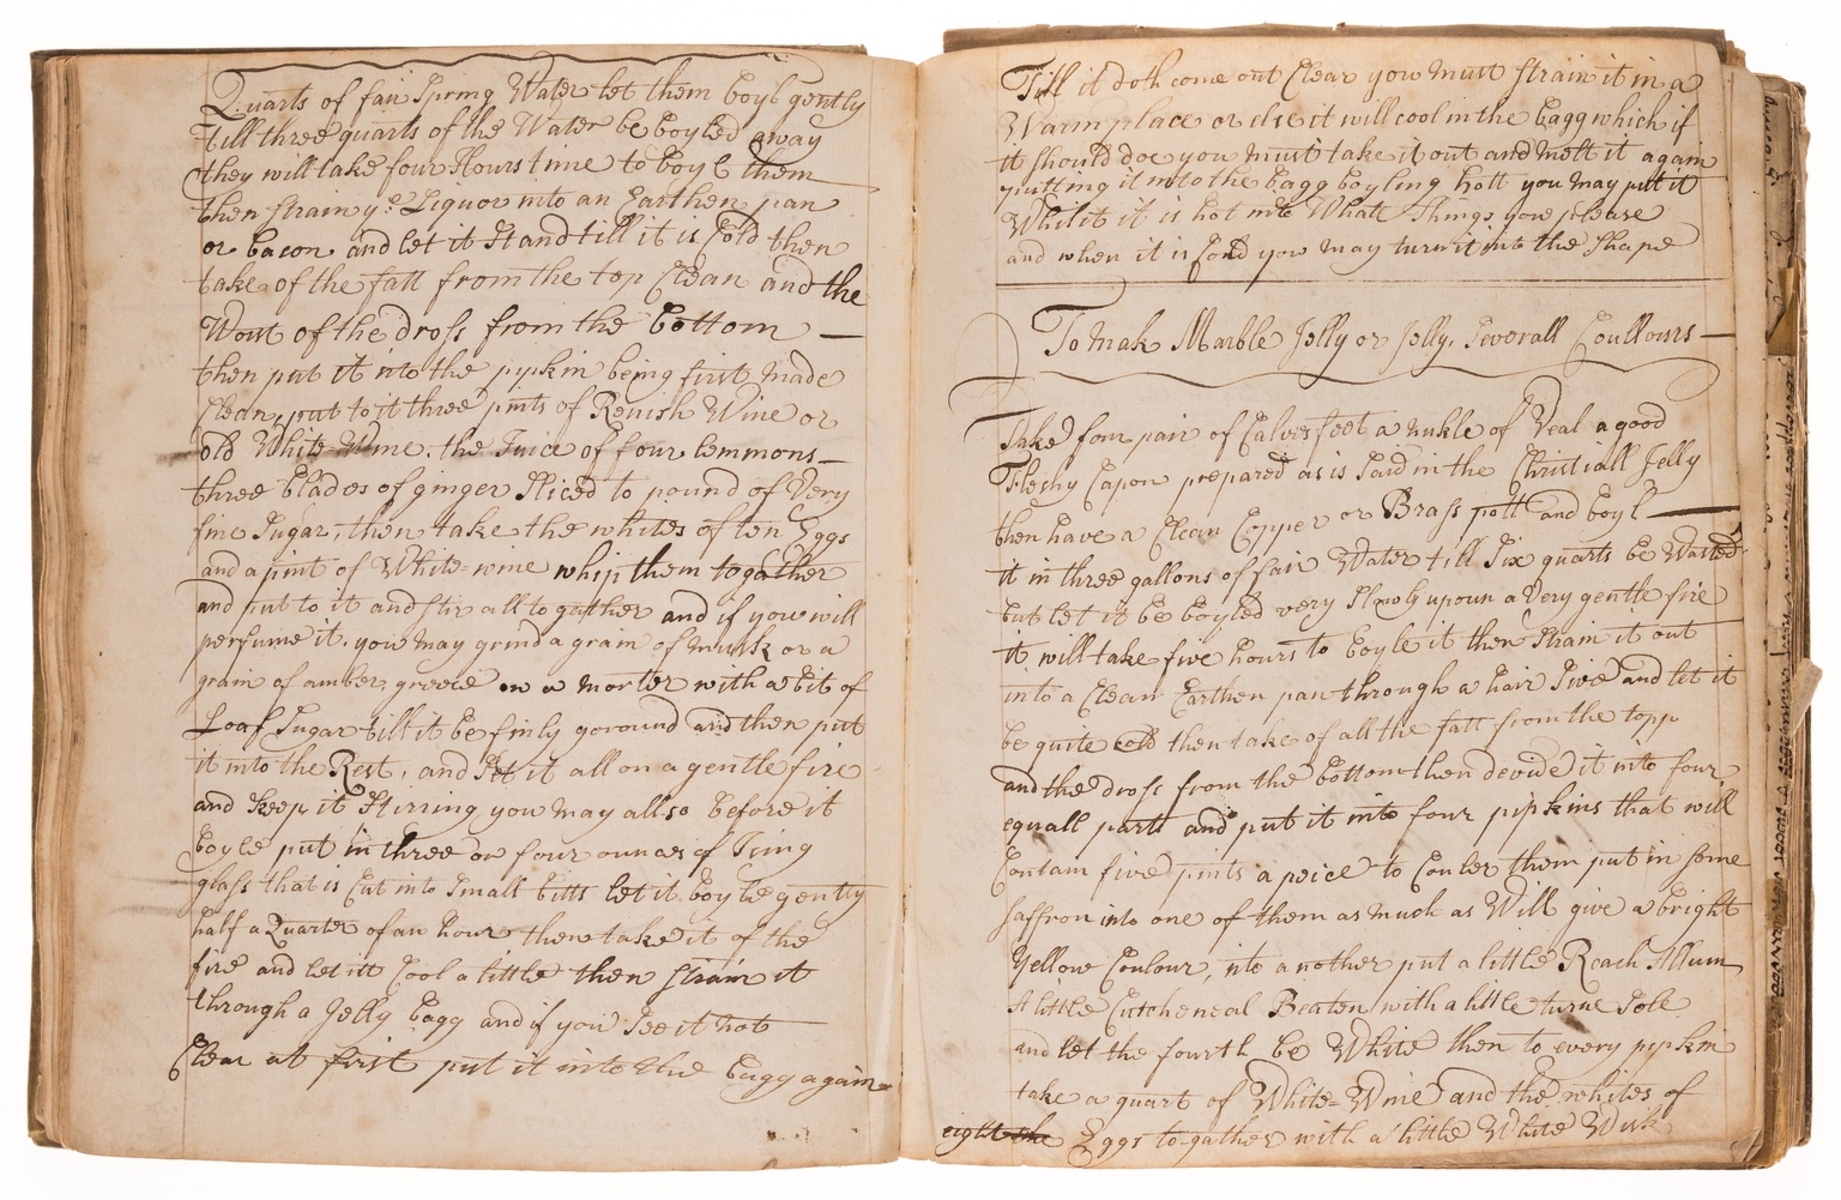 Quarts of fair Spring Water let them boyl gently
till three quarts of the Water be boyled away
they will take four Hours time to boyl them
then strain ye Liquor into an Earthen pan
or bacon and let it Stand till it is Cold then
take of the fatt from the top Clean and the
Worst of the dross from the bottom —
then put it into the pipkin being first made
Clean, put to it three pints of Renish Wine or
old White-Wine, the Juice of four lemmons —
three blades of ginger Sliced to pound of Very
fine Sugar, then take the whites of ten Eggs
and a pint of White=wine whip them togather
and put to it and stir all to gather and if you will
perfume it, you may grind a grain of musk or a
grain of amber greece on a morter with a bit of
Loaf Sugar till it be finly goround and then put
it into the Rest, and Set it all on a gentle fire
and keep it Stirring you may allso before it
boyle put in three or four ounces of Icing
glass that is Cut into Small bitts let it boyle gently
half a Quarter of an hour then take it of the
fire and let itt Cool a little then strain it
through a Jelly bagg and if you See it not
Clear at first put it into the bagg again
Till it doth come out Clear you must strain it in a
Warm place or else it will cool in the bagg which if
it should doe you must take it out and melt it again
putting it into the bagg boyling hott you may put it
Whilst it is hot into What Things you please
and when it is Cond you may turn it into the Shape
To Mak Marble Jelly or Jelly, Severall Coullours —
Take four pair of Calves feet a nukle of Veal a good
Fleshy Capon prepared as is Said in the Christiall Jelly
then have a Clean Copper or Brass pott and boyl —
it in three gallons of fair Water till Six quarts be Wasted
but let it be boyled very Slowly upoun a Very gentle fire
it will take five hours to boyle it then Strain it out
into a Clean Earthen pan through a hair Sive and let it
be quite cold then take of all the fatt from the topp
and the dross from the bottom then devide it into four
equall parts and put it into four pipkins that will
Contain five pints a peice to Couler them put in some
saffron into one of them as much as Will give a bright
Yellow Coulour, into another put a little Roach Allum
A little Cutcheneal Beaten with a little turne Sole
and let the fourth be White then to every pipkin
take a quart of White=Wine and the whites of
eight Eggs to-gather with a little White Wisk